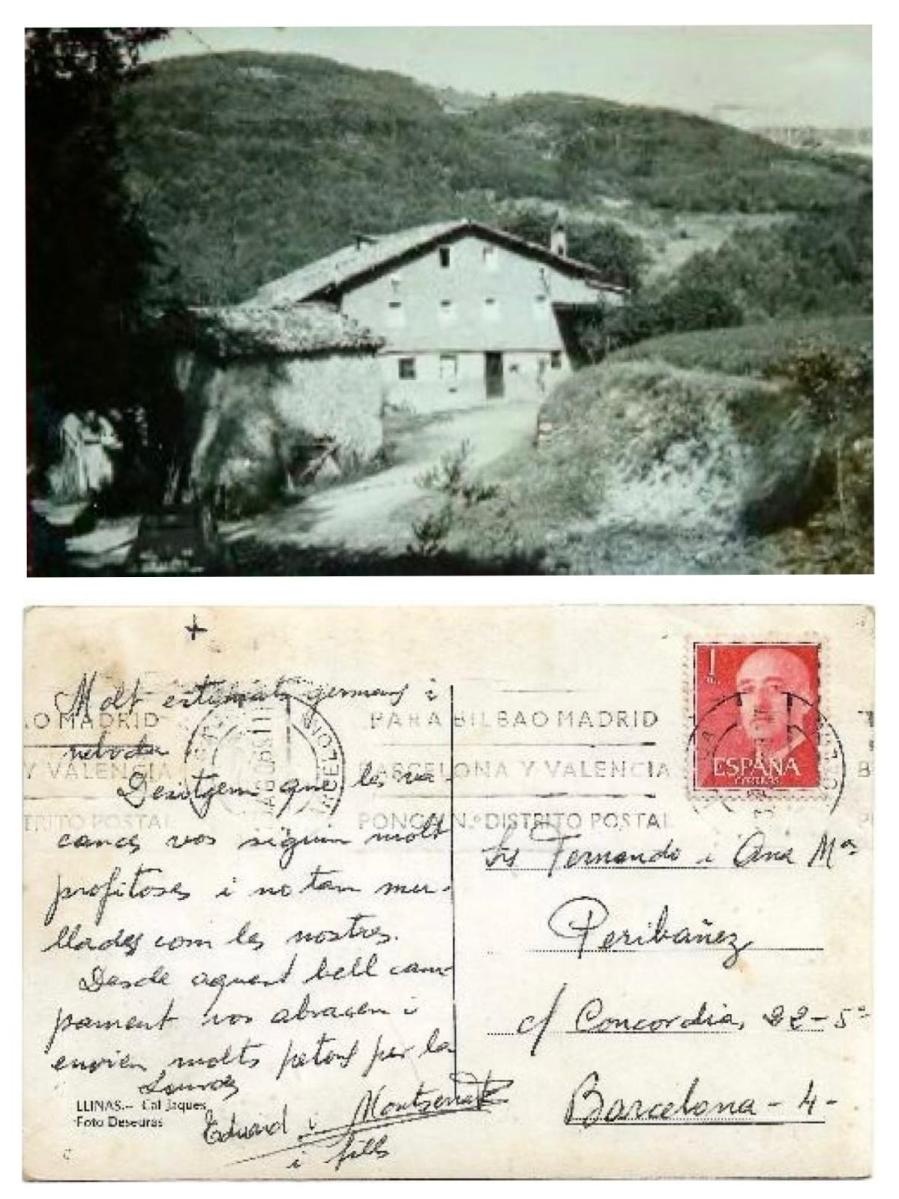 Molt estimats germans i
neboda
Desitgem que les va
cances vos siguin molt
profitoses i no tan mu-
llades com les nostres.
Desde aquest bell cam-
pament vos abracem i
envien molts petons per la
Lourdes
Eduard i Montserrat
i fills
LLINAS.- Cal Jaques
Foto Deseuras
AO MADRID
Y VALENCIA
TRITO POSTAL
BARCELONA
PARA BILBAO MADRID
BARCELONA Y VALENCIA
PONGA N.º DISTRITO POSTAL
1
ESPAÑA
CORREOS
Srs Fernando i Ana Mª
Peribañez
c/ Concordia, 22-5º
Barcelona - 4 -